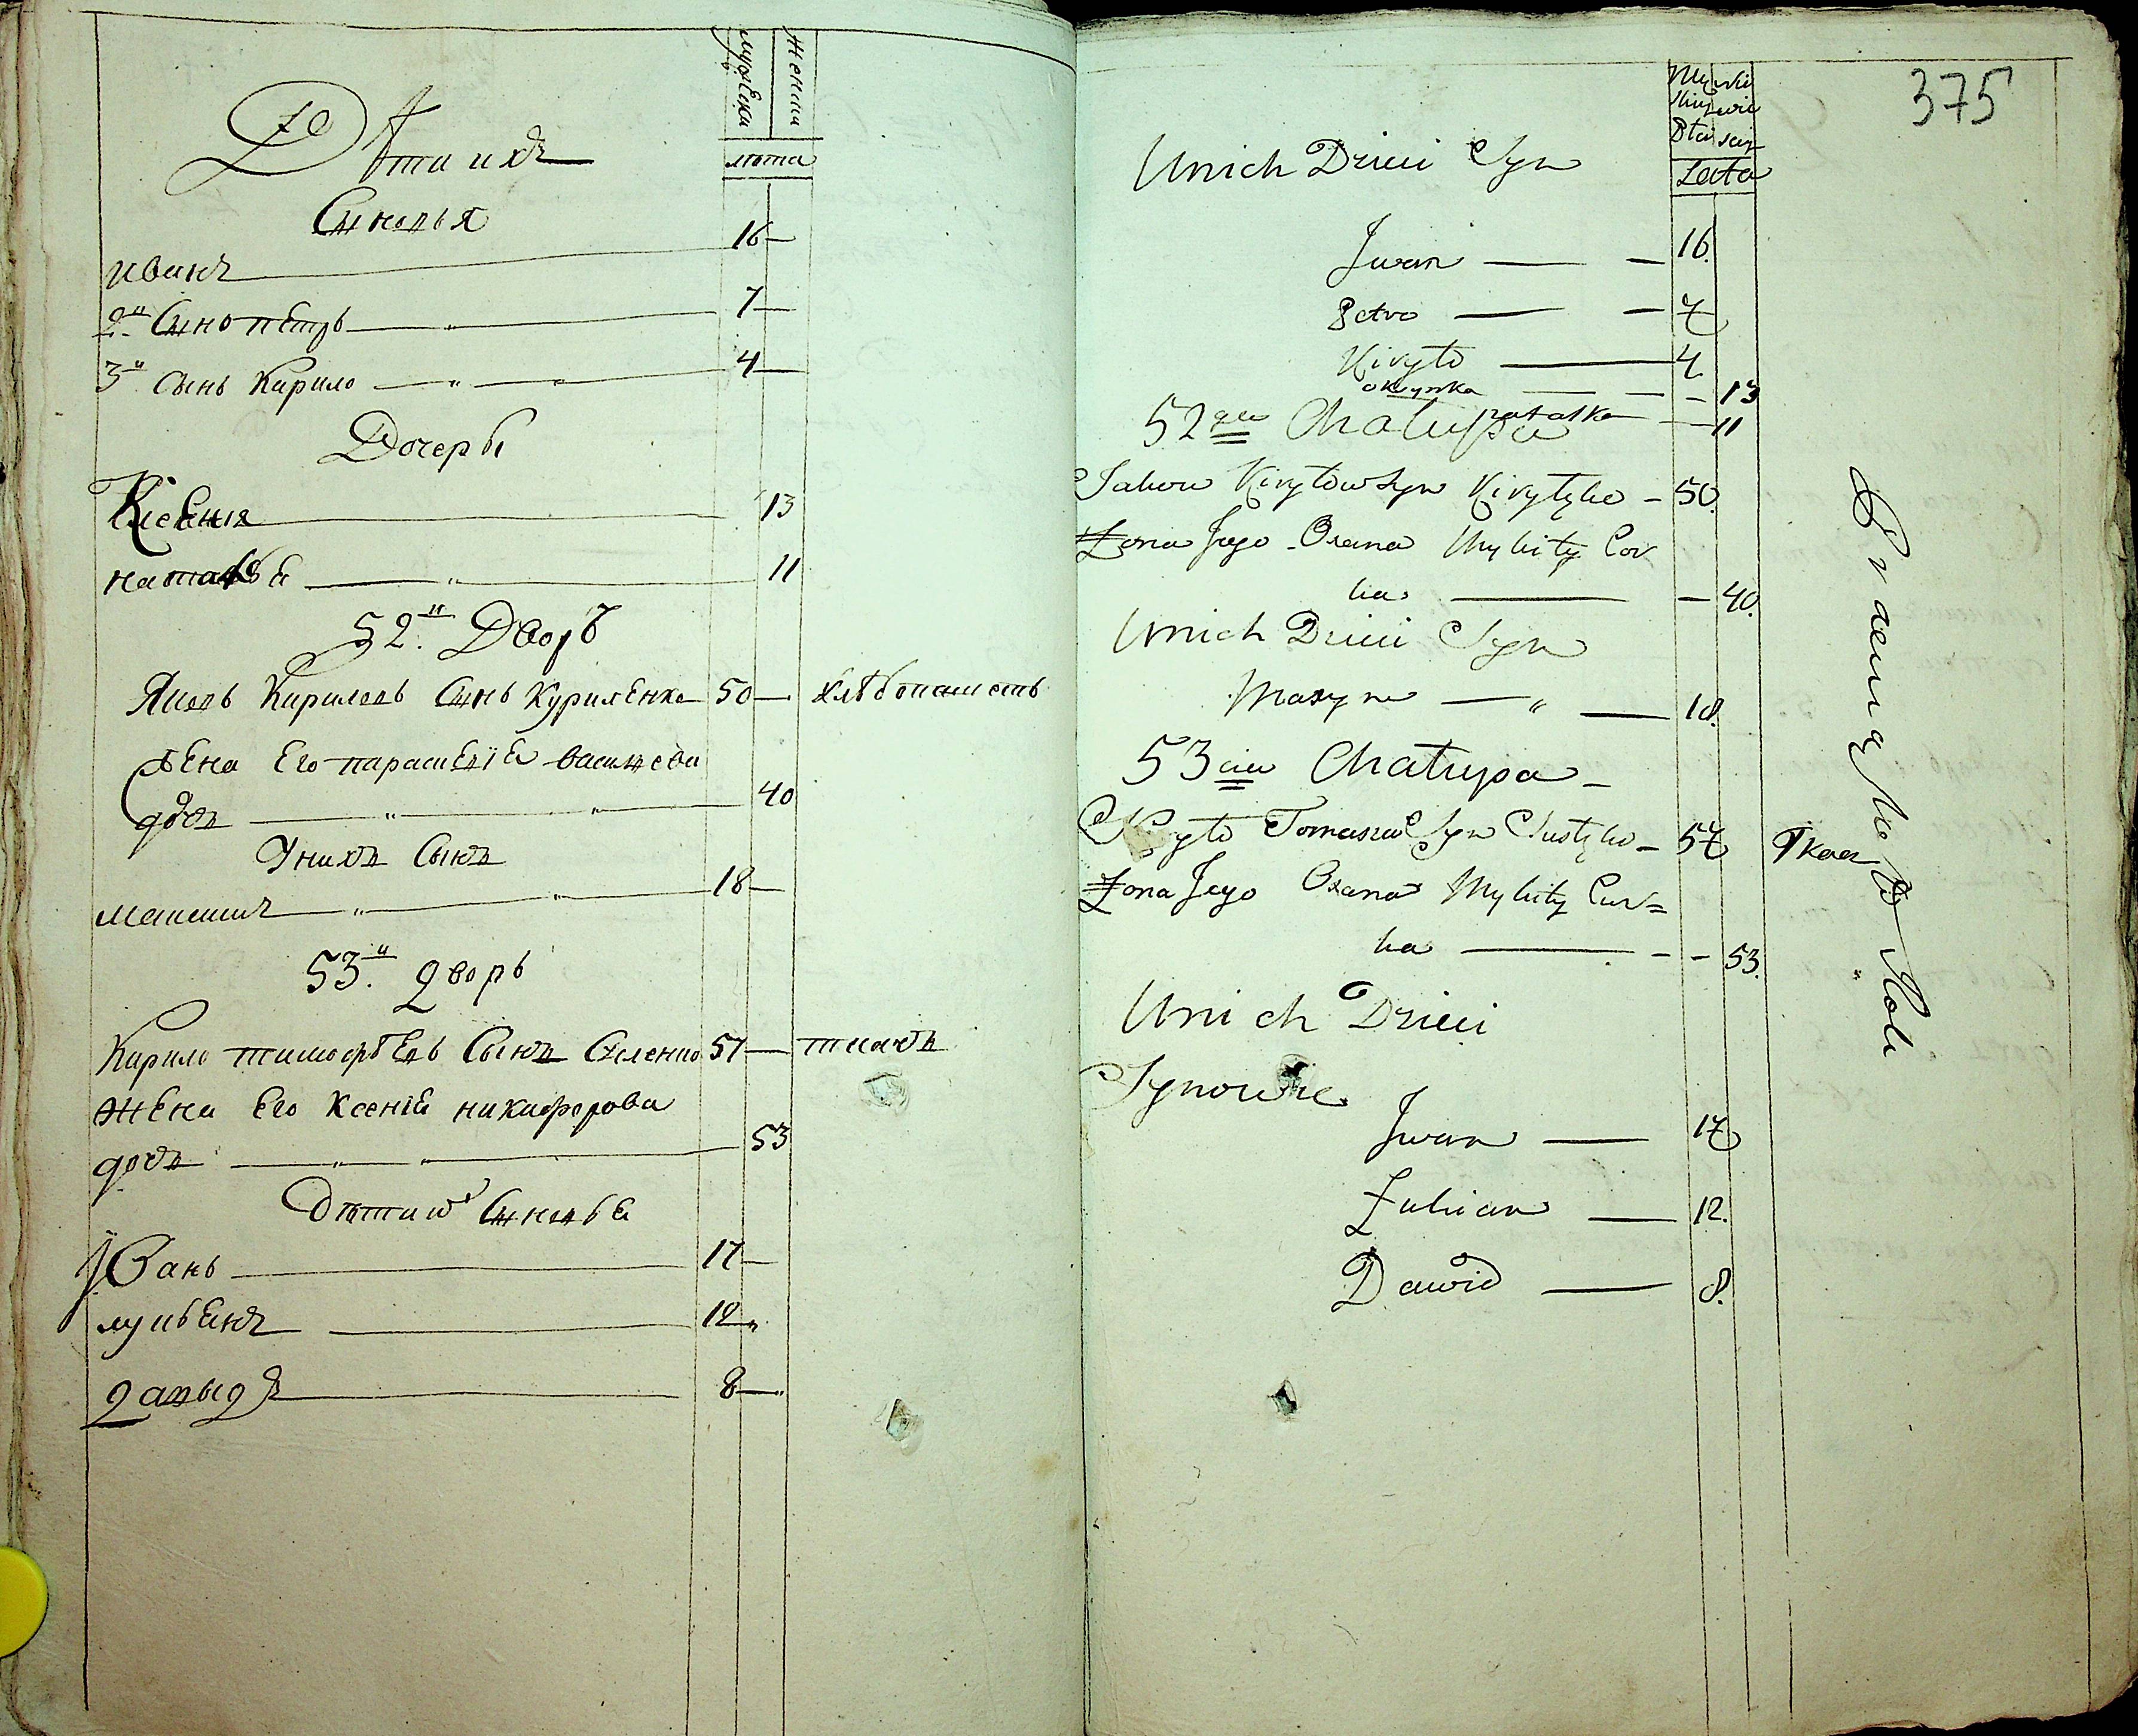 мужеска
женска
лѣта
Дѣти ихъ
Синовья
иванъ 16
2й Синъ петръ 7
3й сынъ Кирило 4
Дочеры
Ксения 13
наталья 11
52й Дворъ
Яковъ Кириловъ Синъ Куриленко 50 хлѣбопашецъ
жена Его параскевiя васильева
дочь 40
У нихъ Сынъ
максимъ 18
53й дворъ
Кирило тимофѣевъ Сынъ 57 ткачъ
жена Его Ксенiя никифорова
дочь 53
дѣти их Синовья
Иванъ 17
лукьянъ 12
давыдъ 8
375
Lata
Unich Dzieci Syn
Iwan 16.
Petro 7
Kiryło 4
oksynka 13
natalka 11
52ga Chałupa
Jakow Kiryłow Syn Kiryłęko 50.
Żona Jego Oxana Mykity Cór
ka 40.
Unich Dzieci Syn
Maxym 18.
53cia Chałupa
Kiryło Tomasza Syn 57 Tkacz
Żona Jego Oxana Mykity Cur=
ka 53.
Unich Dzieci
Synowie
Iwan 17
Łukian 12.
Dawid 8.
Pracuią Na Roli